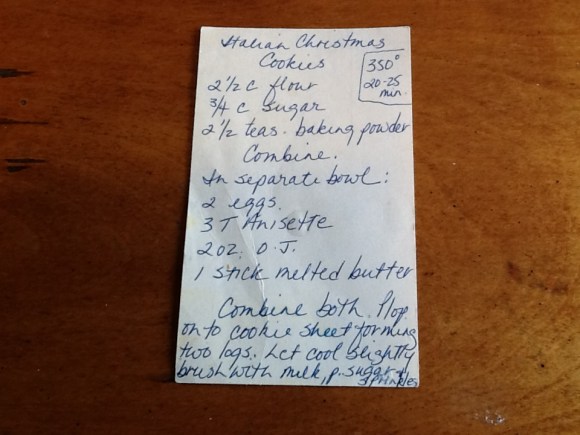 Italian Christmas
Cookies
350°
20-25
min.
2 1/2 c flour
3/4 c sugar
2 1/2 teas. baking powder
Combine.
In separate bowl:
2 eggs.
3 T Anisette
2 oz. O.J.
1 stick melted butter
Combine both. Plop
on to cookie sheet forming
two logs. Let cool slightly
brush with milk, p. sugar +
sprinkles